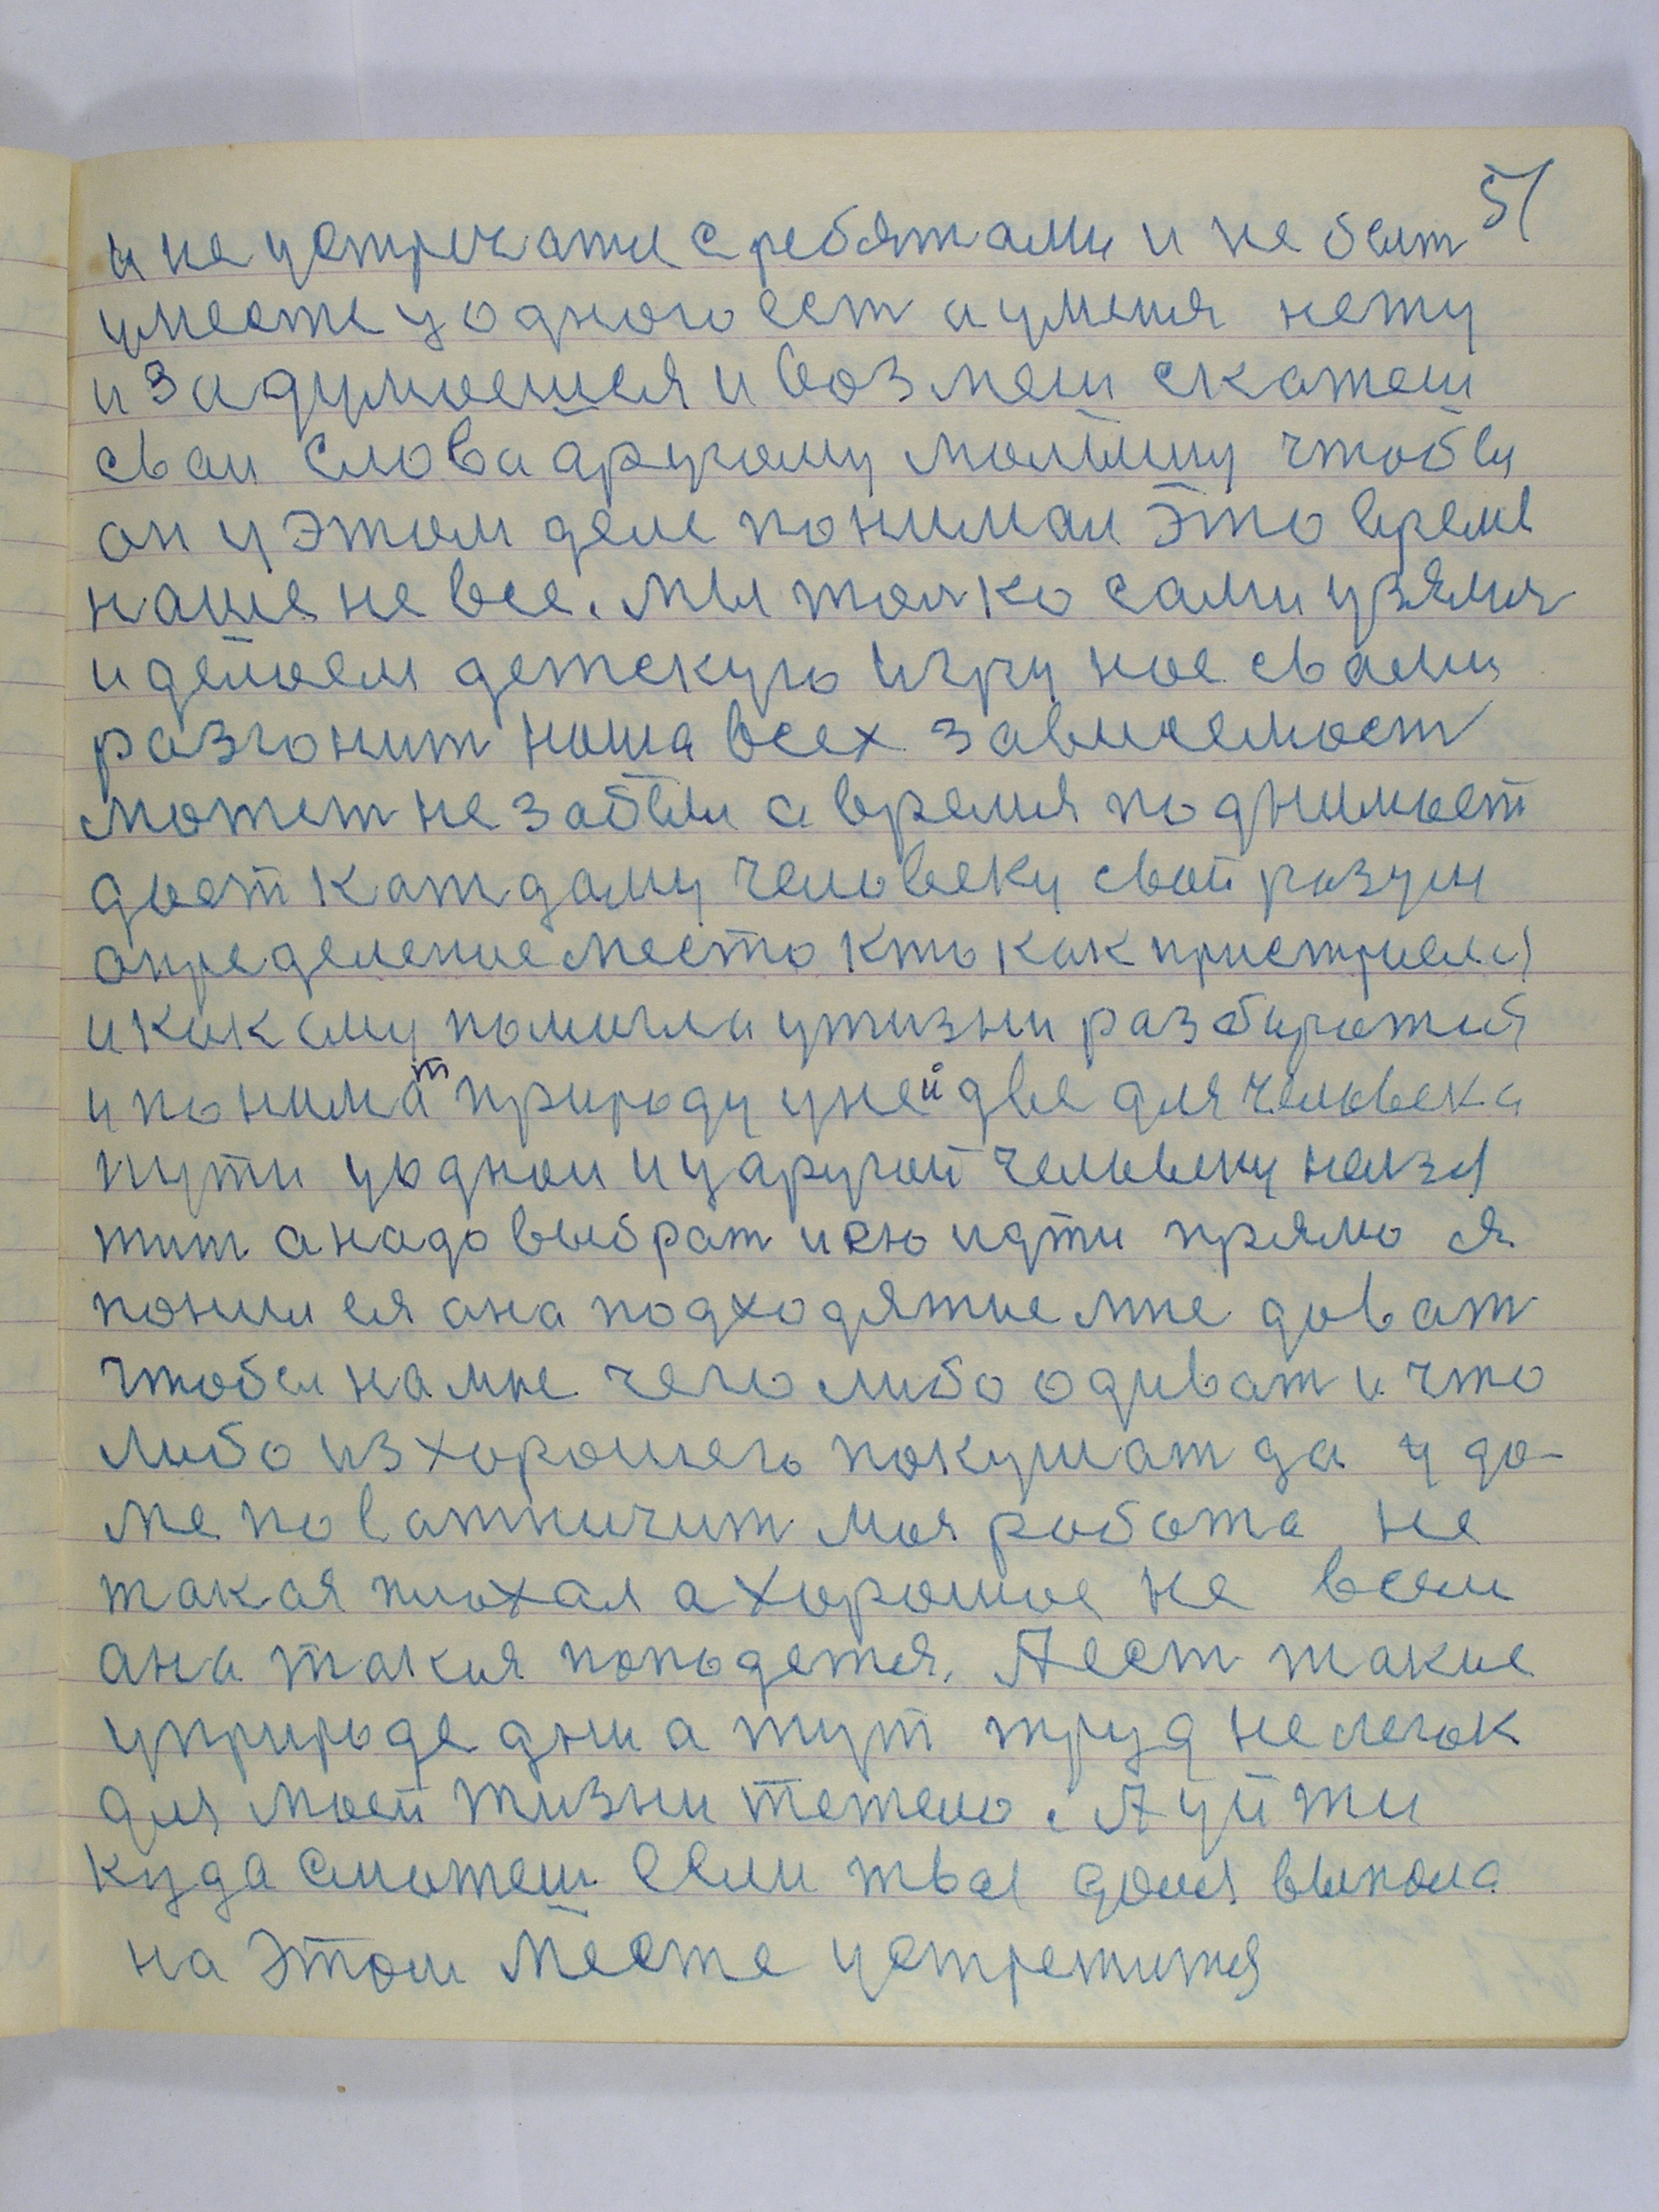 51
и не устречатся с ребятами и не быт
уместе у одного ест а уменя нету
и задумоешся и возмеш скажеш
сваи слова другому малышу чтобы
он у этом деле понимал это время
наше не все. мы толко сами узяли
и делоем детскую игру нос свами
разгонит наша всех зависемост
может не забыли а время поднимает
дает каждаму человеку свой разум
определение место кто как пристроился
и как аму помигла ужизни разбиратся
и понимат природу у ней две для человека
пути уоднои и у другой человеку нелзя
жит а надо выбрат и ею идти прямо я
понился ана подходятие мне доват
чтобы на мне чего либо одиват и что
либо из хорошего покушат да у до-
ме поватничит моя работа не
такая плохая а хорошое не всем
ана такия попадется. А ест такие
уприроде дни а тут труд нелегок
для моей жизни тежело. А уйти
куда сможеш если твоя доля выпала
на этом месте устретится